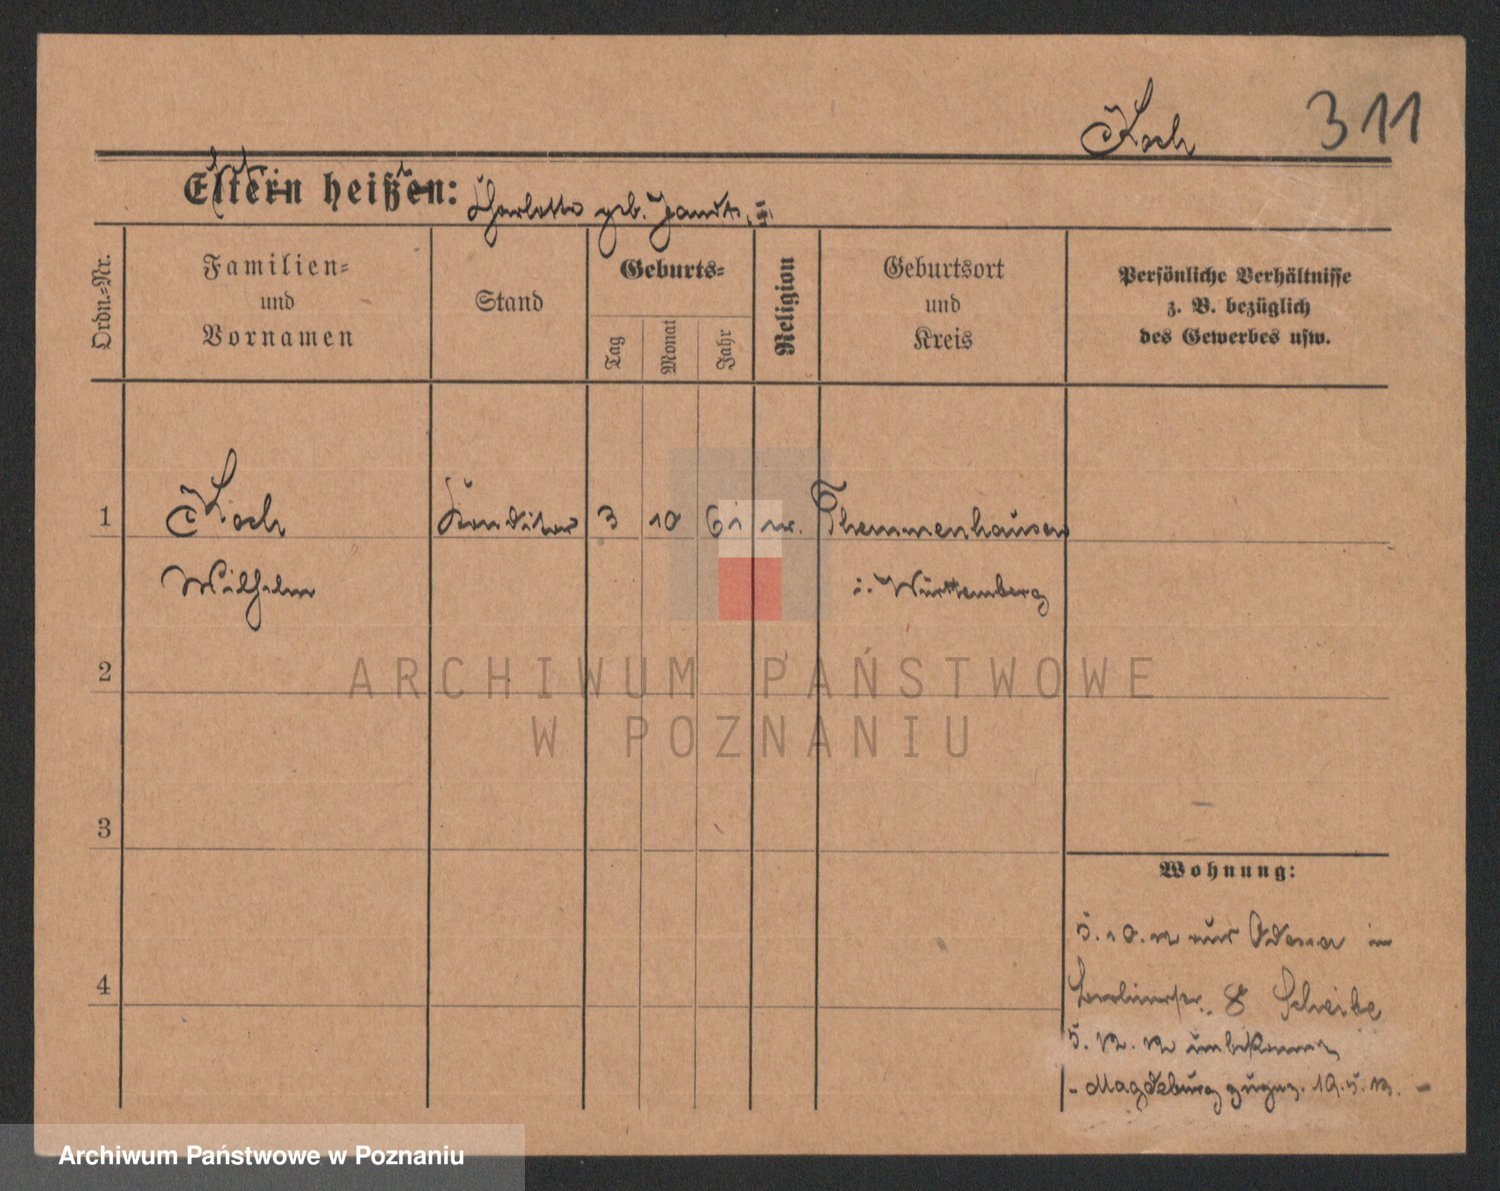 Koch 311
Eltern heißen: Charlotte geb.
Ordn.-Nr.
Familien-
und
Vornamen
Stand
Geburts-
Tag
Monat
Jahr
Religion
Geburtsort
und
Kreis
Persönliche Verhältnisse
z. B. bezüglich
des Gewerbes usw.
1 Koch Konditor 3 10 61 Themmenhausen
Wilhelm i. Württemberg
2
3
4
Wohnung:
5.10.12 aus Odessa in
Berlinerstr. 8 Scheibe
5.12.12 unbekannt
- Magdeburg zugez. 19.5.13. -
ARCHIWUM PAŃSTWOWE
W POZNANIU
Archiwum Państwowe w Poznaniu